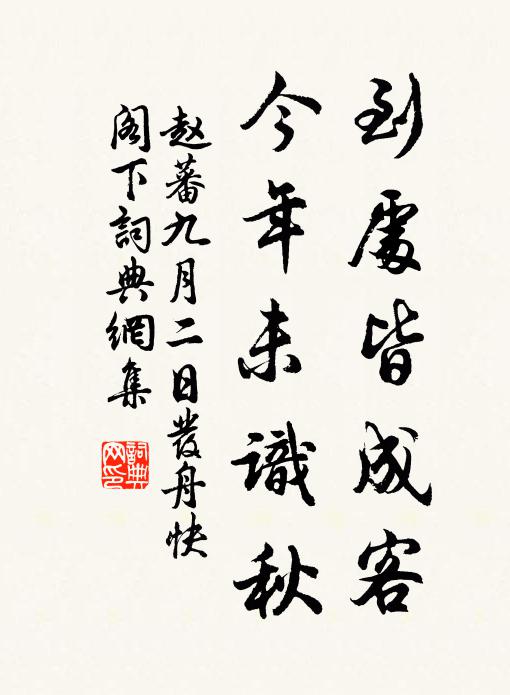 到處皆成客
今年未識秋
赵蕃九月二日發舟快
阁下詞典網集
詞典网印